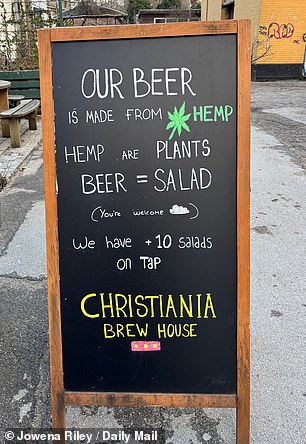 OUR BEER
IS MADE FROM HEMP
HEMP ARE PLANTS
BEER = SALAD
(You're welcome)
We have +10 salads
on TAP
CHRISTIANIA
BREW HOUSE
© Jowena Riley / Daily Mail